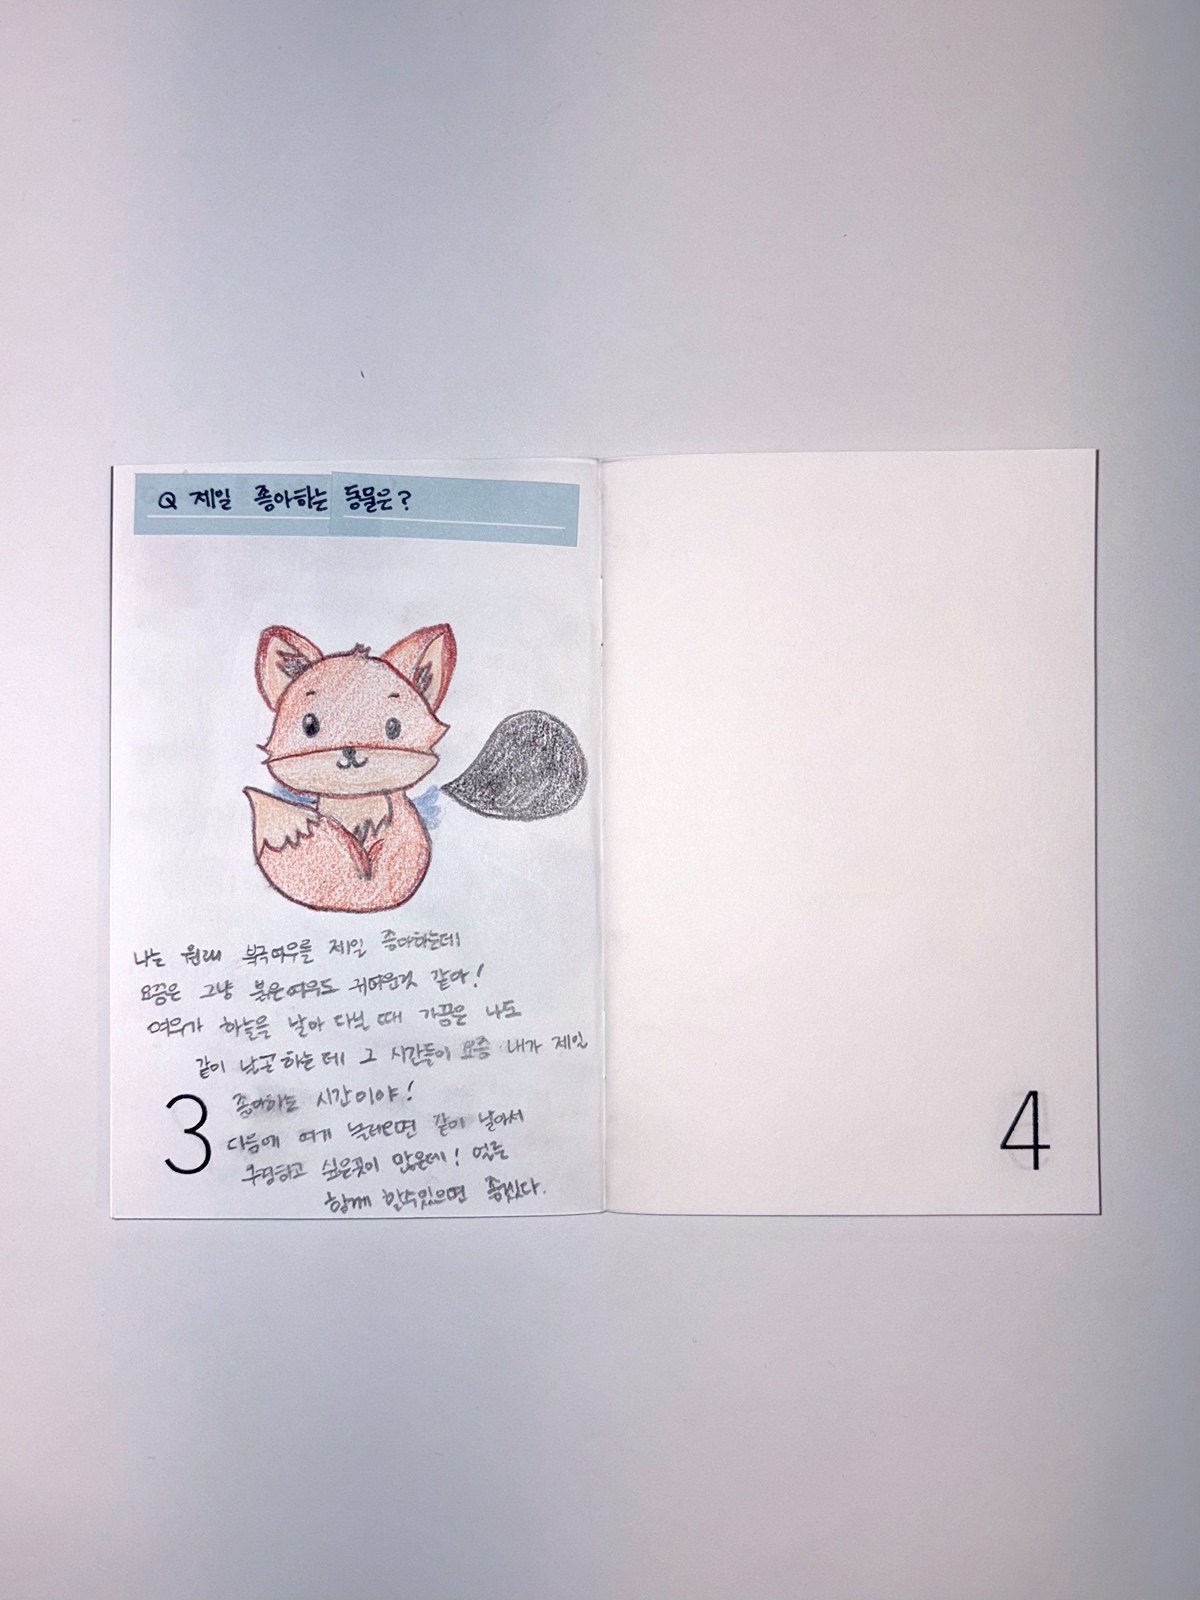 Q 제일 좋아하는 동물은?
나는 원래 북극여우를 제일 좋아하는데
요즘은 그냥 붉은여우도 귀여운것 같아!
여우가 하늘을 날아 다닐 때 가끔은 나도
같이 날곤 하는데 그 시간들이 요즘 내가 제일
좋아하는 시간이야!
다음에 여기 놀러오면 같이 날아서
구경하고 싶은곳이 많은데!
함께 할수있으면 좋겠다.
3
4